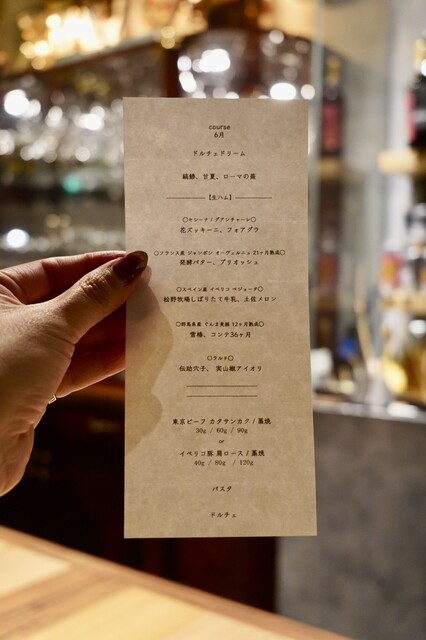 course
6月
ドルチェドリーム
縞鯵、甘夏、ローマの菜
【生ハム】
花ズッキーニ、フォアグラ
○フランス産 ジャンボン オーヴェルニュ 21ヶ月熟成○
発酵バター、ブリオッシュ
○スペイン産 イベリコ ベジョータ○
松野牧場しぼりたて牛乳、土佐メロン
○群馬県産 ぐんま麦豚 12ヶ月熟成○
コンテ36ヶ月
○ラルド○
伝助穴子、実山椒アイオリ
東京ビーフ カタサンカク / 藁焼
30g / 60g / 90g
or
イベリコ豚 肩ロース / 藁焼
40g / 80g / 120g
パスタ
ドルチェ